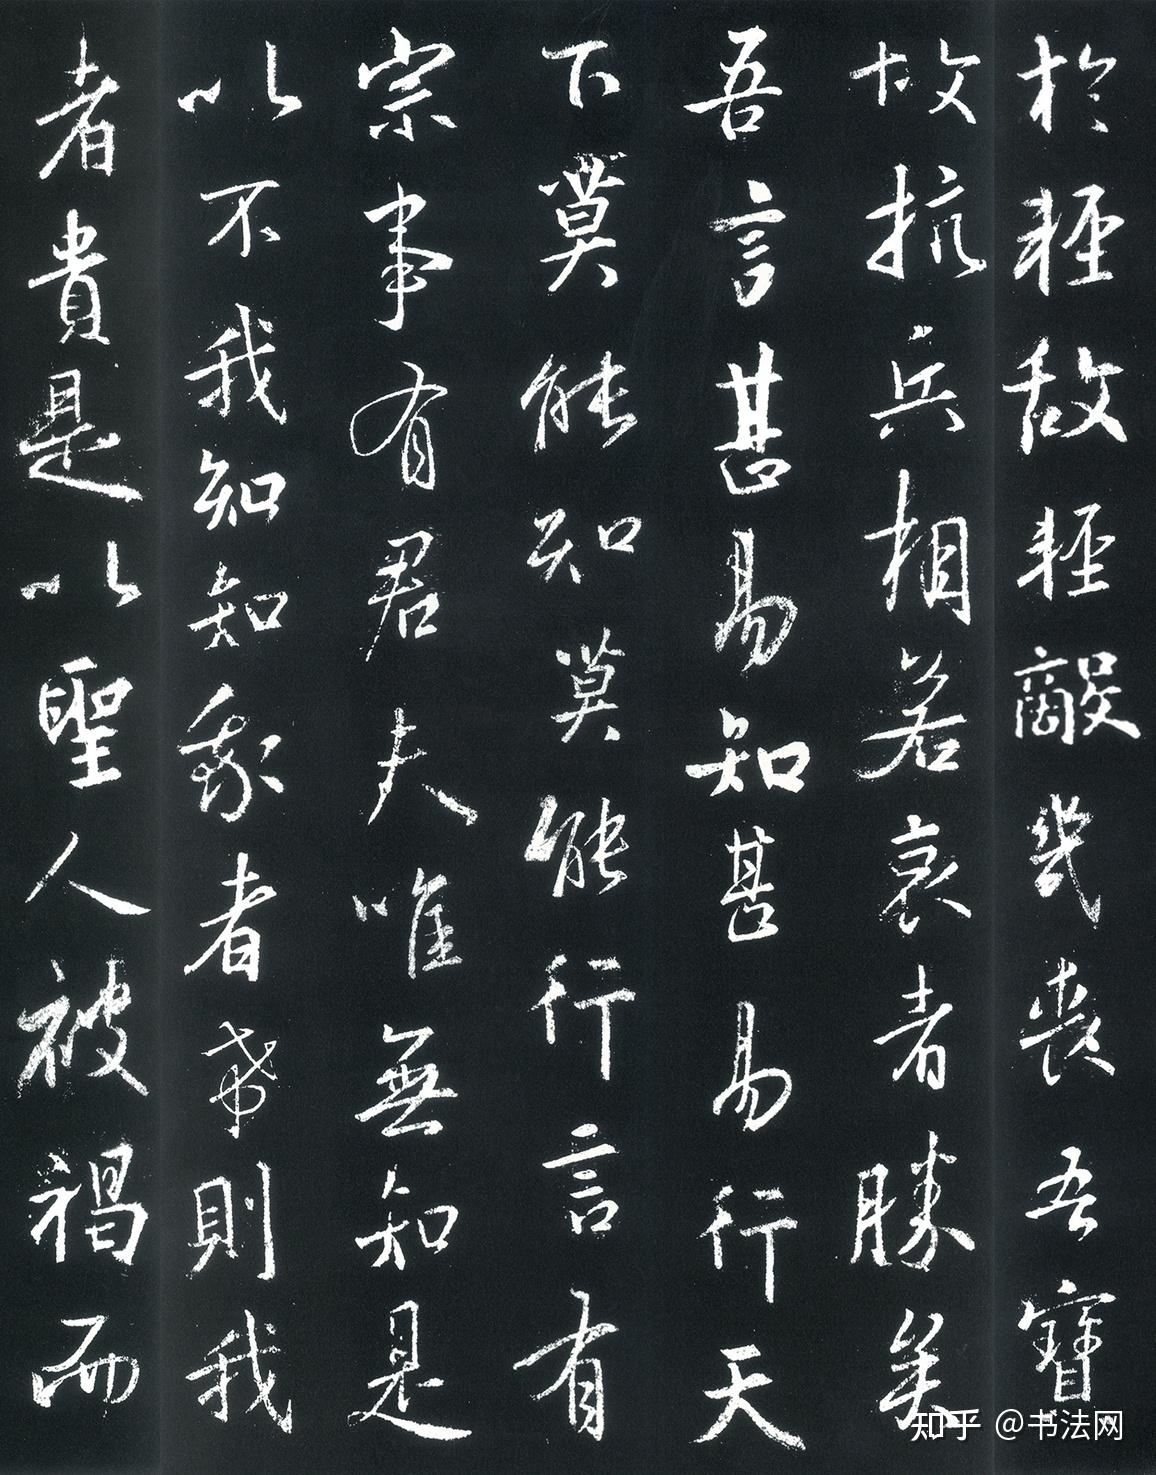 於輕敵輕敵幾喪吾寶
故抗兵相若哀者勝矣
吾言甚易知甚易行天
下莫能知莫能行言有
宗事有君夫唯無知是
以不我知知我者希則我
者貴是以聖人被褐而
知乎 @书法网